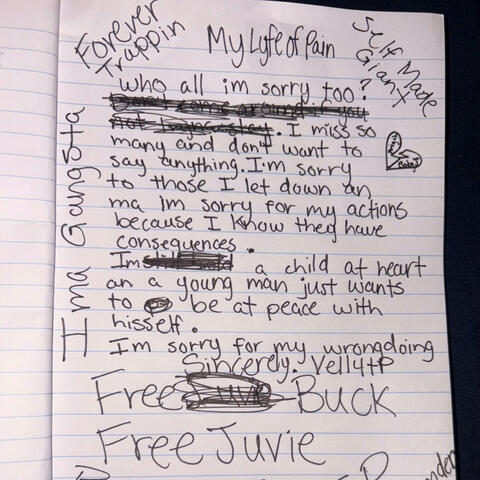 Forever
Trappin
My Lyfe of Pain
Self Made
Giant
who all im sorry too?
. I miss so
many and don't want to
say anything. I'm sorry
to those I let down an
ma im sorry for my actions
because I know they have
consequences.
Im a child at heart
an a young man just wants
to be at peace with
hisself.
I'm sorry for my wrongdoing
Sincerely. Velly4P
Free Buck
Free Juvie
I ma Gangsta